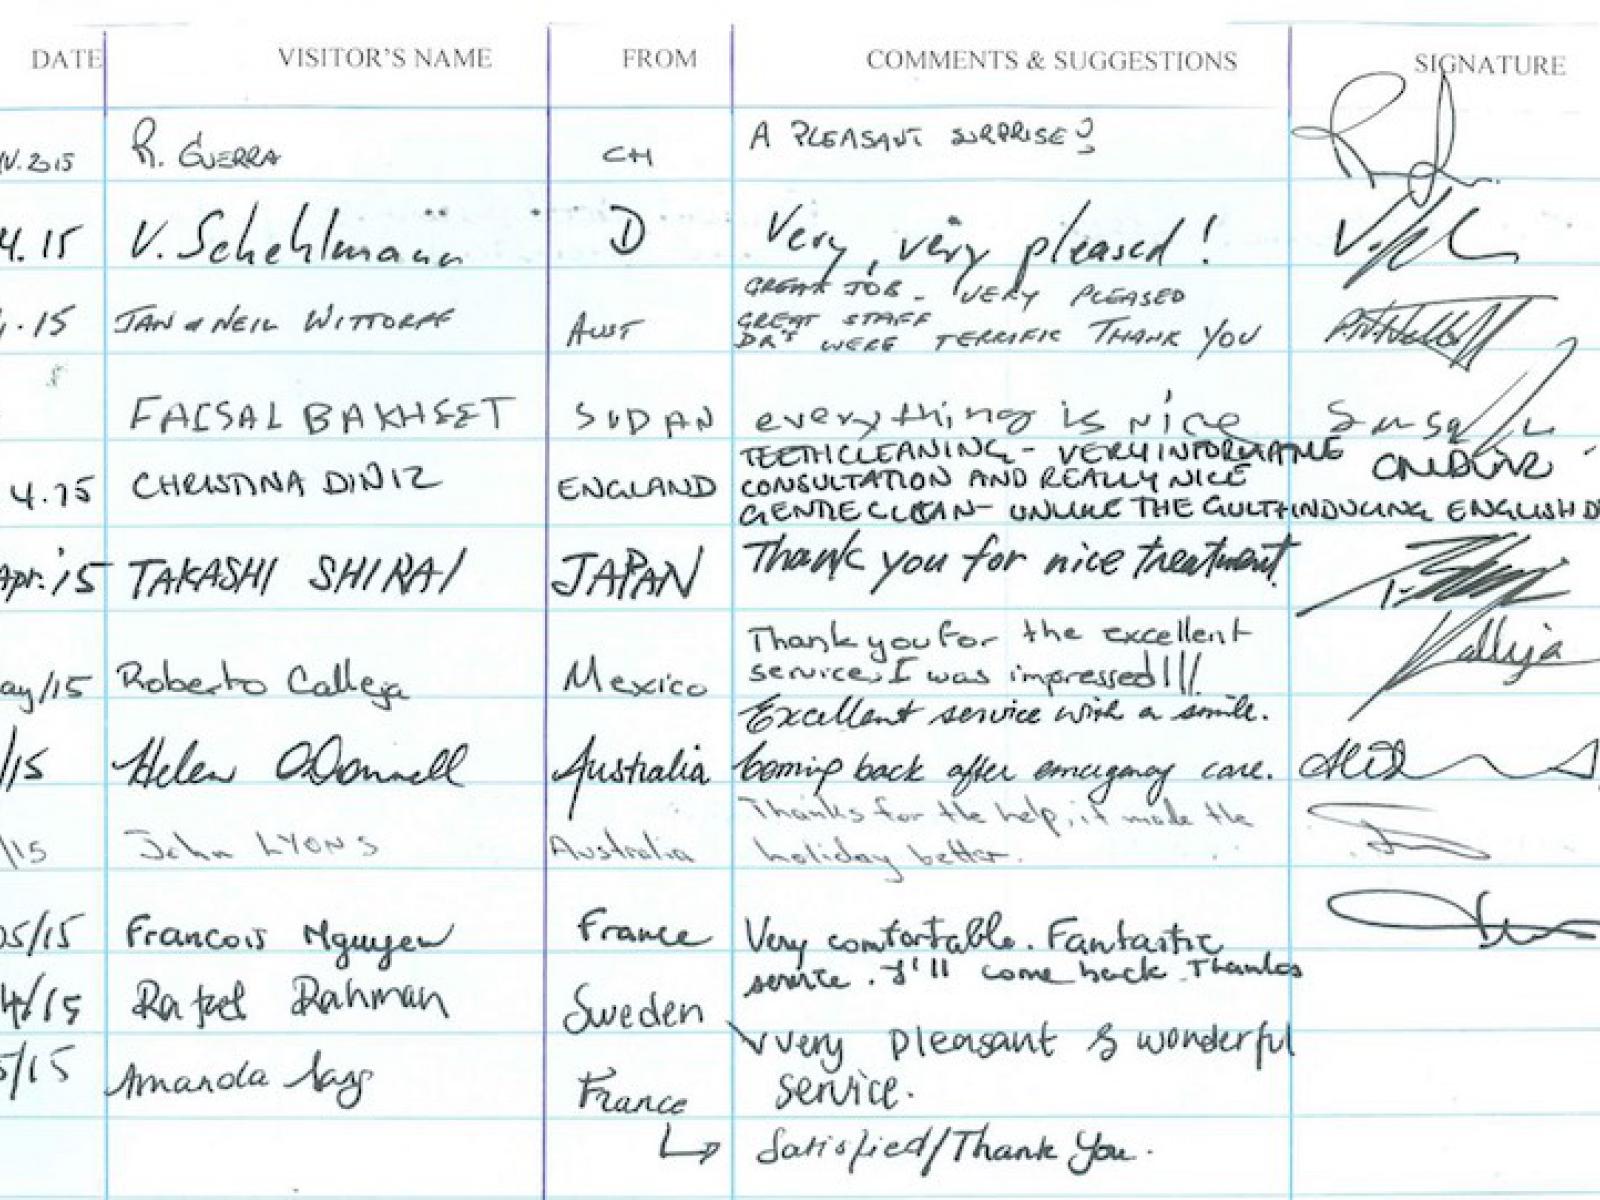 DATE VISITOR'S NAME FROM COMMENTS & SUGGESTIONS SIGNATURE
IV.2015 R. GUERRA CH A PLEASANT SURPRISE!
4.15 V. Schehlmann D Very, very pleased!
GREAT JOB - VERY PLEASED
.15 JAN & NEIL WITTORFF AUST GREAT STAFF
DR'S WERE TERRIFIC THANK YOU
FAISAL BAKHEET SUDAN everything is nice
TEETH CLEANING - VERY INFORMATIVE
4.15 CHRISTINA DINIZ ENGLAND CONSULTATION AND REALLY NICE
GENTLE CLEAN - UNLIKE THE GUILT INDUCING ENGLISH D
Apr. 15 TAKASHI SHIRAI JAPAN Thank you for nice treatment.
Thank you for the excellent
ay/15 Roberto Calleja Mexico service. I was impressed!!! Calleja
Excellent service with a smile.
/15 Helen O'Donnell Australia Coming back after emergency care.
Thanks for the help, it made the
/15 John LYONS Australia holiday better.
05/15 Francois Nguyen France Very comfortable. Fantastic
service. I'll come back. Thanks
4/15 Rafael Rahman Sweden very pleasant & wonderful
5/15 Amanda France service.
Satisfied/Thank You.